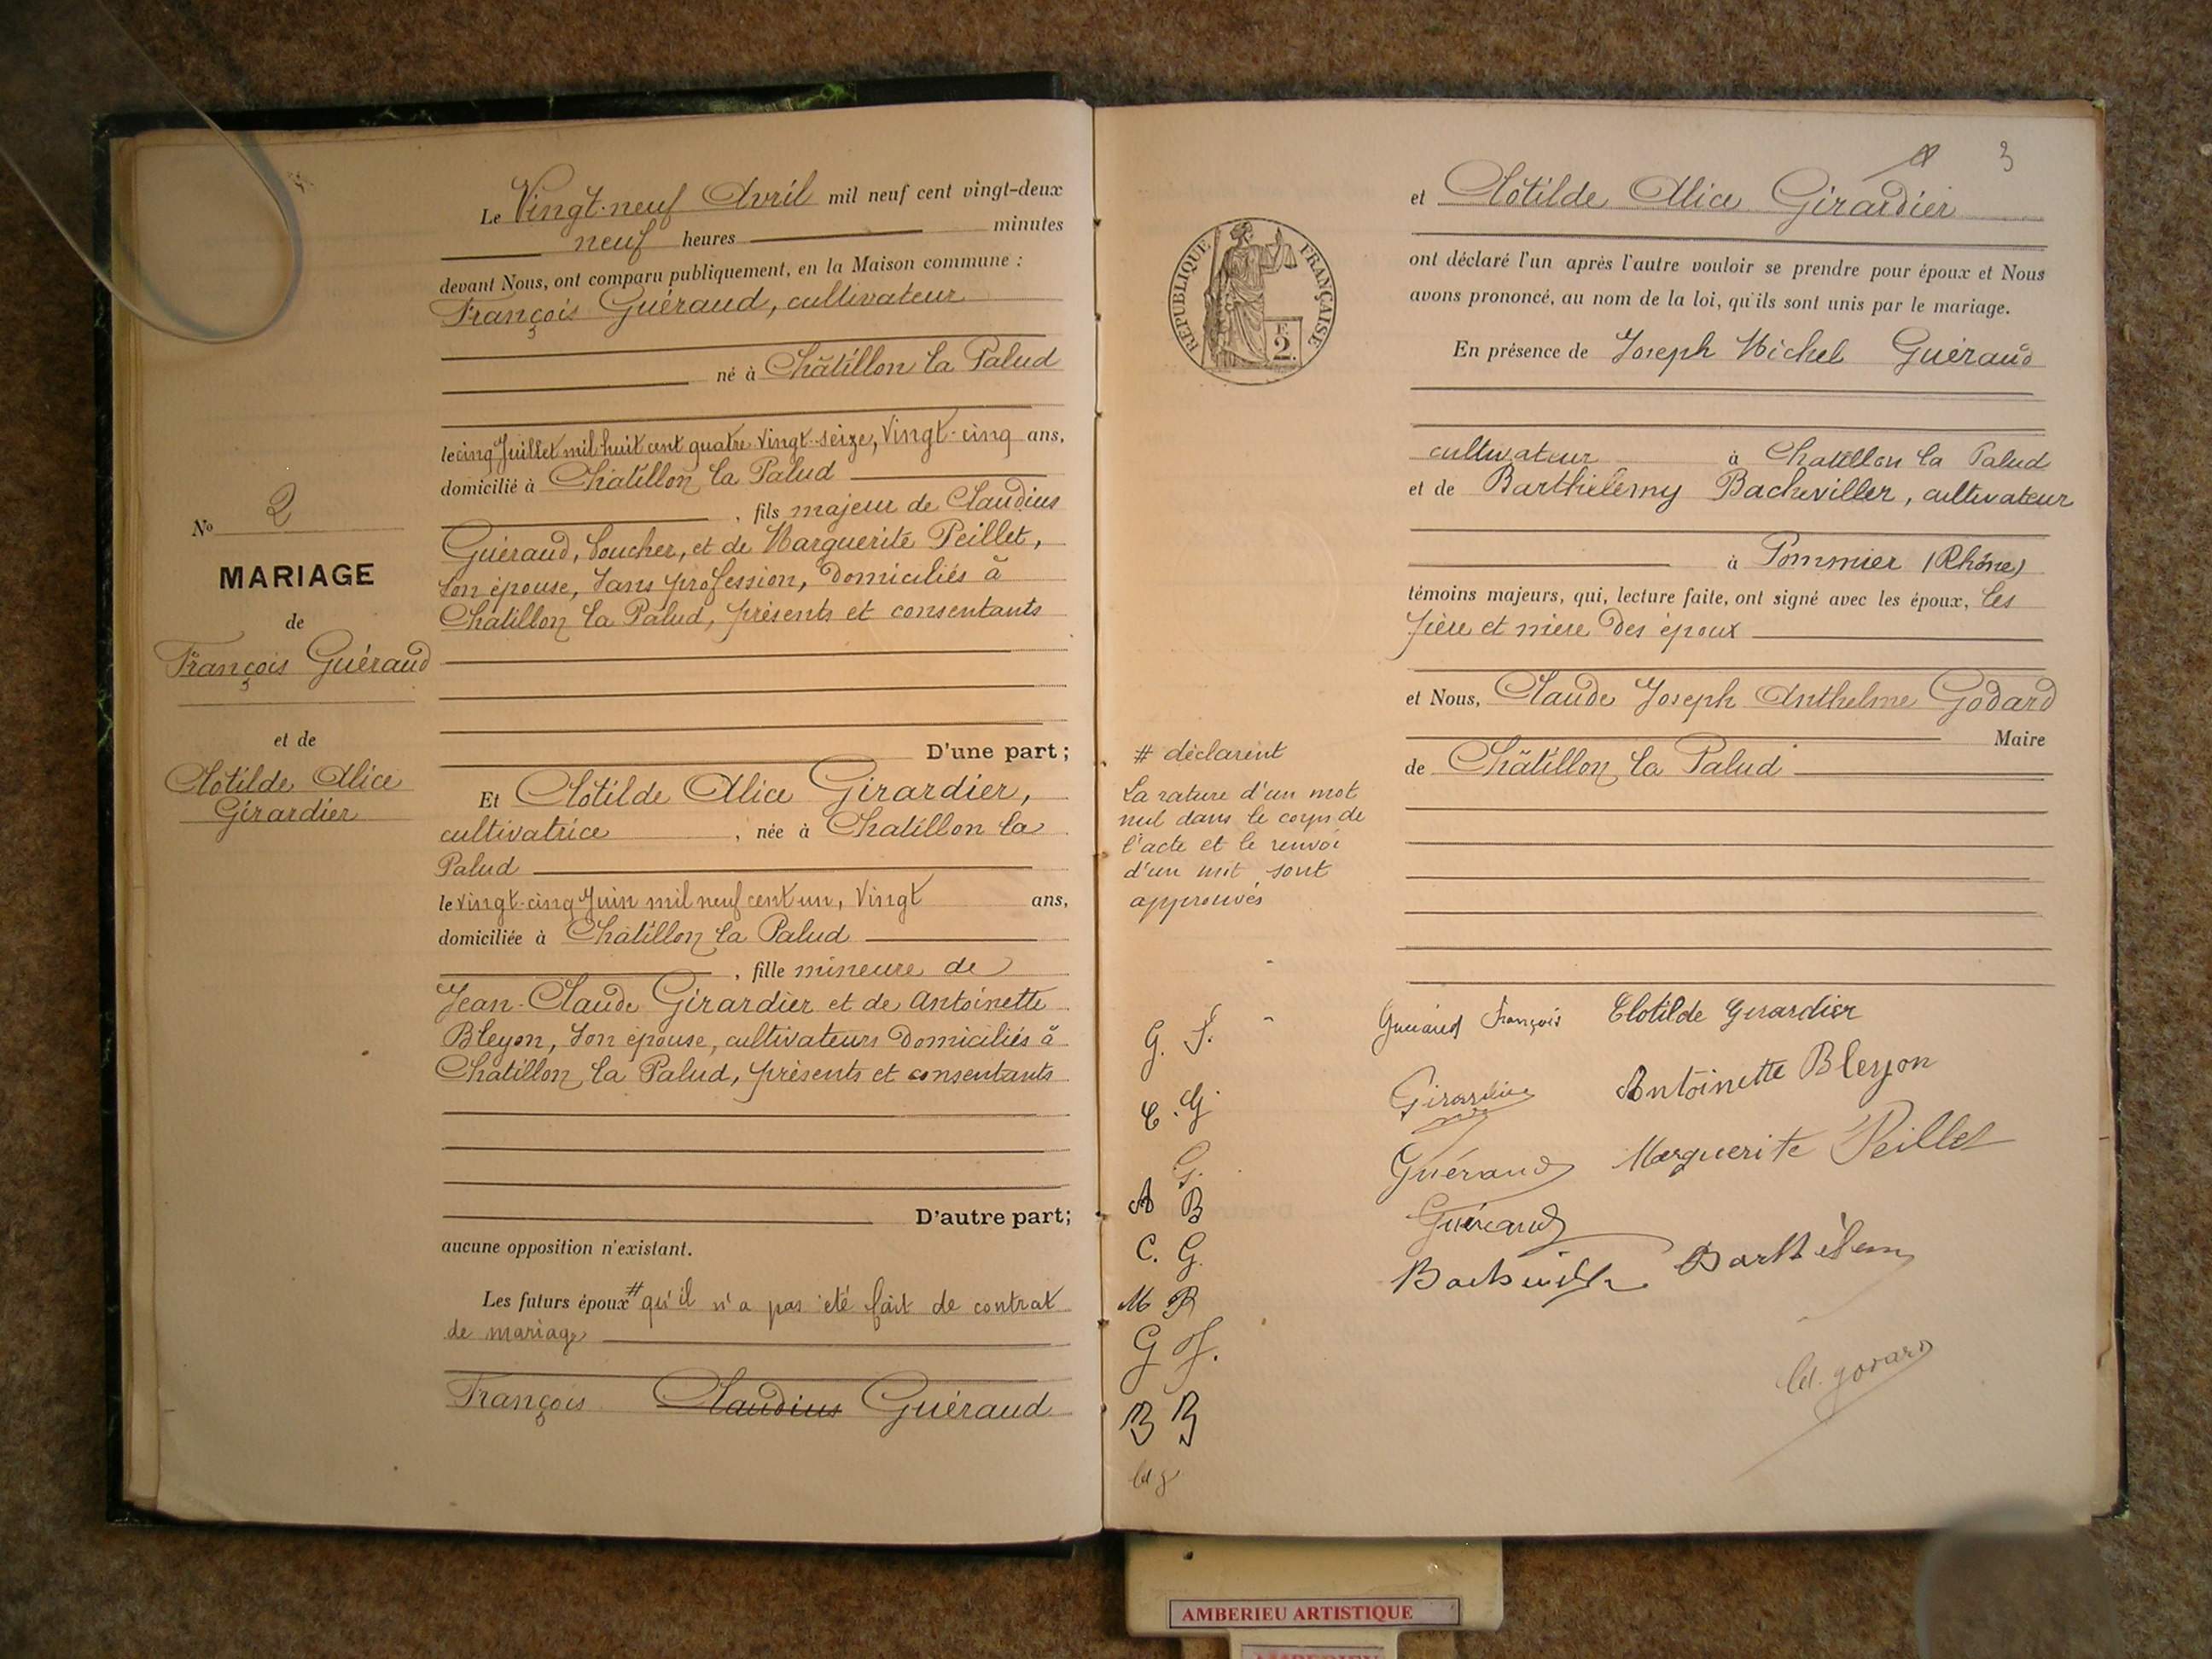 N° 2
MARIAGE
de
François Guéraud
et de
Clotilde Alice
Girardier
Le Vingt-neuf Avril mil neuf cent vingt-deux
neuf heures minutes
devant Nous, ont comparu publiquement, en la Maison commune :
François Guéraud, cultivateur
né à Châtillon la Palud
le cinq Juillet mil huit cent quatre vingt-seize, vingt-cinq ans,
domicilié à Châtillon la Palud
, fils majeur de Claudius
Guéraud, boucher, et de Marguerite Peillet,
son épouse, sans profession, domiciliés à
Châtillon la Palud, présents et consentants
D'une part ;
Et Clotilde Alice Girardier,
cultivatrice , née à Chatillon la
Palud
le vingt-cinq Juin mil neuf cent un, vingt ans,
domiciliée à Châtillon la Palud
, fille mineure de
Jean-Claude Girardier et de Antoinette
Bleyon, son épouse, cultivateurs domiciliés à
Chatillon la Palud, présents et consentants
D'autre part;
aucune opposition n'existant.
Les futurs époux # qu'il n'a pas été fait de contrat
de mariage
François Claudius Guéraud
3
et Clotilde Alice Girardier
ont déclaré l'un après l'autre vouloir se prendre pour époux et Nous
avons prononcé, au nom de la loi, qu'ils sont unis par le mariage.
RÉPUBLIQUE FRANÇAISE
F.
2.
En présence de Joseph Michel Guéraud
cultivateur à Chatillon la Palud
et de Barthélemy Bacheviller, cultivateur
à Pommier (Rhône)
témoins majeurs, qui, lecture faite, ont signé avec les époux, les
père et mère des époux
et Nous, Claude Joseph Anthelme Godard
Maire
de Châtillon la Palud
# déclarent
La rature d'un mot
nul dans le corps de
l'acte et le renvoi
d'un mot sont
approuvés
G. F.
C. G.
G.
A B
C. G.
M P
G J.
B B
Guéraud François Clotilde Girardier
Girardier Antoinette Bleyon
Guéraud Marguerite Peillet
Guéraud
Barthélemy
godard
AMBERIEU ARTISTIQUE
AMBERIEU